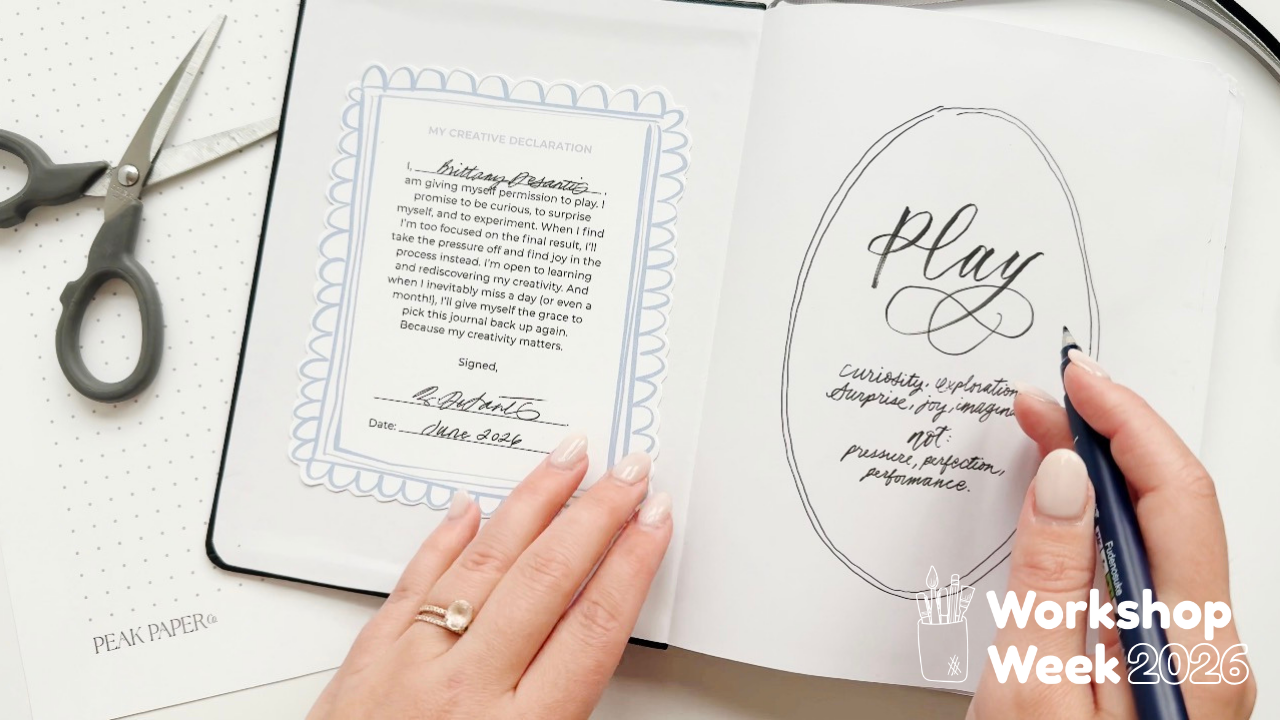 MY CREATIVE DECLARATION
I, Brittany DeSantis,
am giving myself permission to play. I
promise to be curious, to surprise
myself, and to experiment. When I find
I'm too focused on the final result, I'll
take the pressure off and find joy in the
process instead. I'm open to learning
and rediscovering my creativity. And
when I inevitably miss a day (or even a
month!), I'll give myself the grace to
pick this journal back up again.
Because my creativity matters.
Signed,
B. DeSantis
Date: June 2026
play
curiosity, exploration
surprise, joy, imagin
not:
pressure, perfection,
performance.
PEAK PAPER Co
Fudenosuke
Workshop
Week 2026